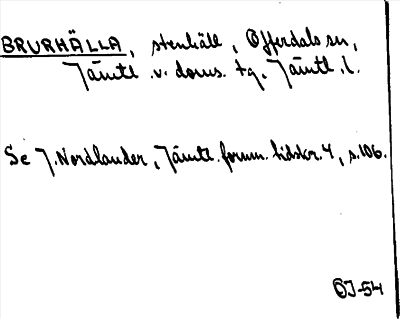 BRURHÄLLA, stenhäll, Offerdals sn,
Jämtl. v. doms. tg. Jämtl. l.
Se J. Nordlander, Jämtl. fornm. tidskr. 4, s. 106.
OJ-54